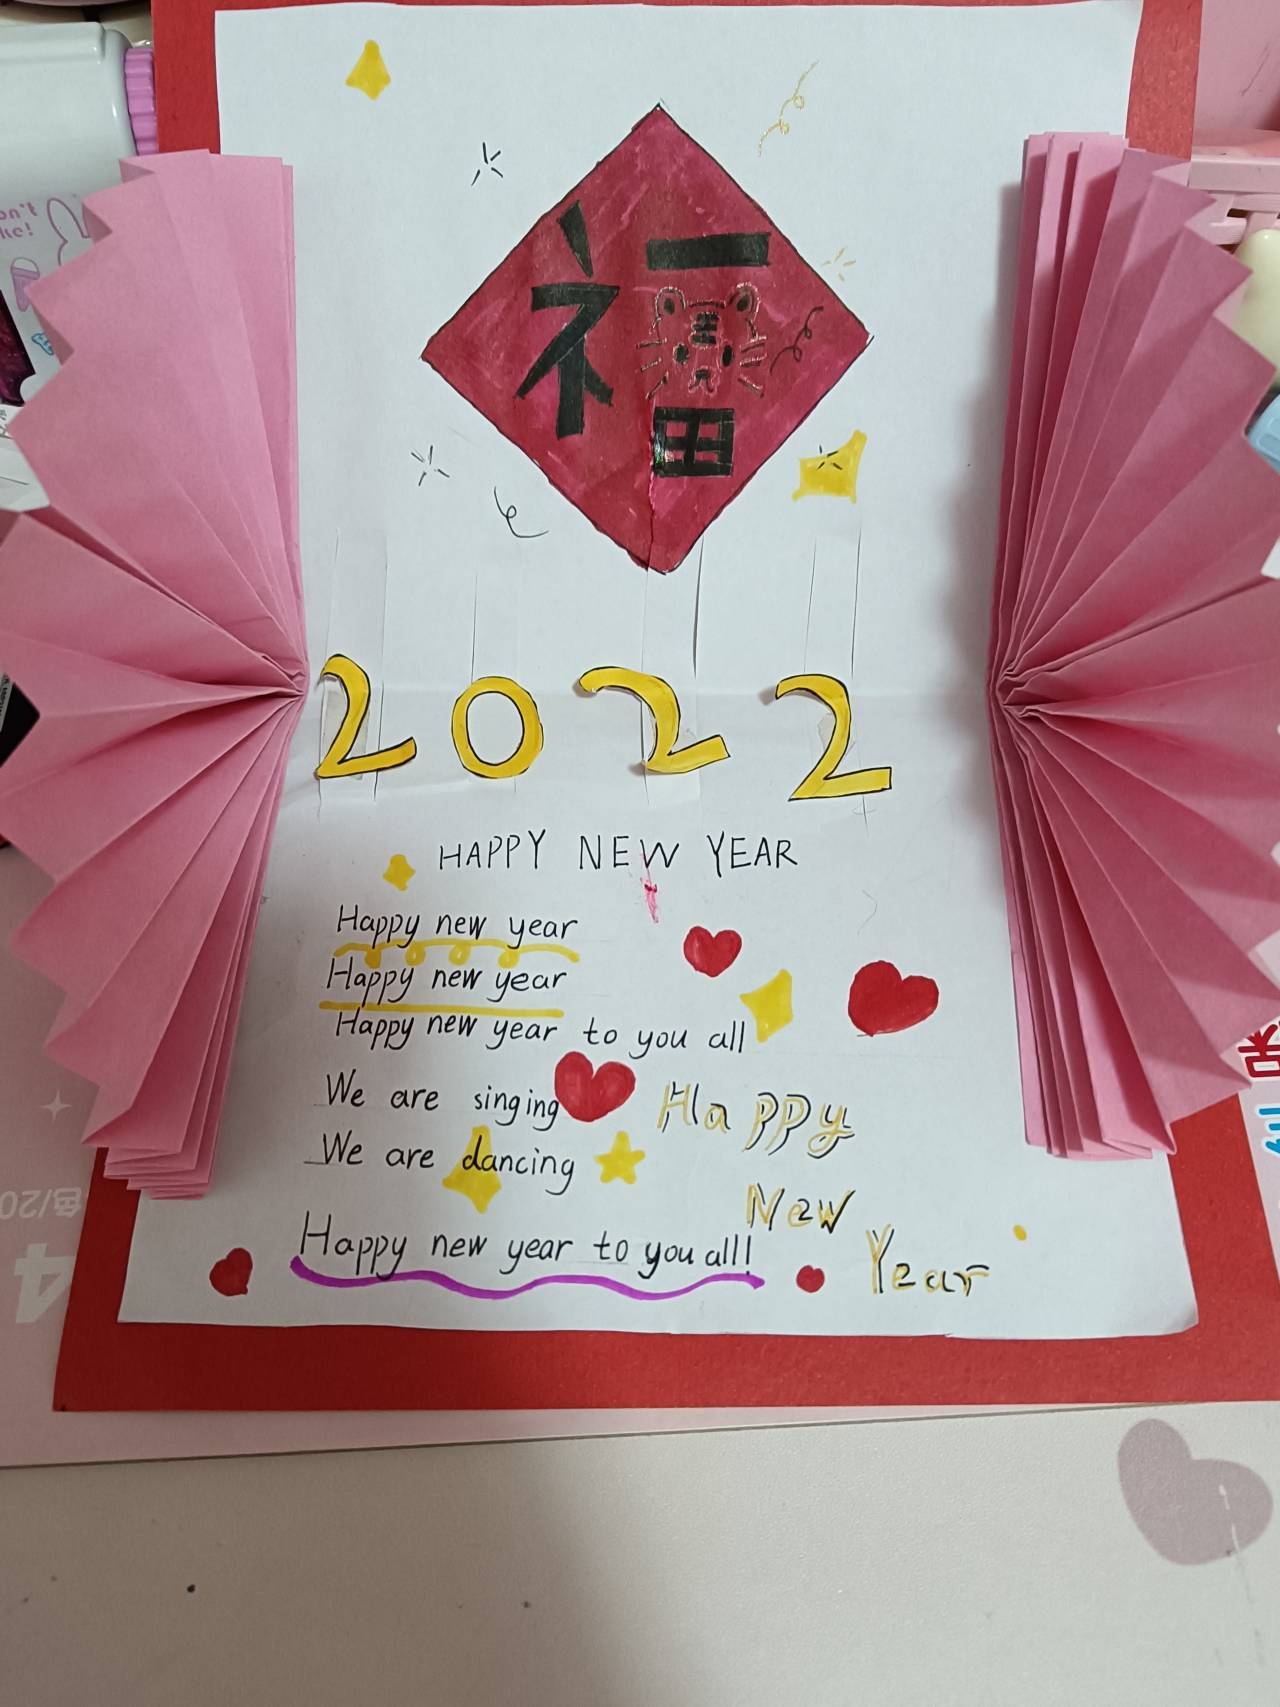 福
2022
HAPPY NEW YEAR
Happy new year
Happy new year
Happy new year to you all
We are singing
We are dancing
Happy new year to you all!
Happy
New
Year